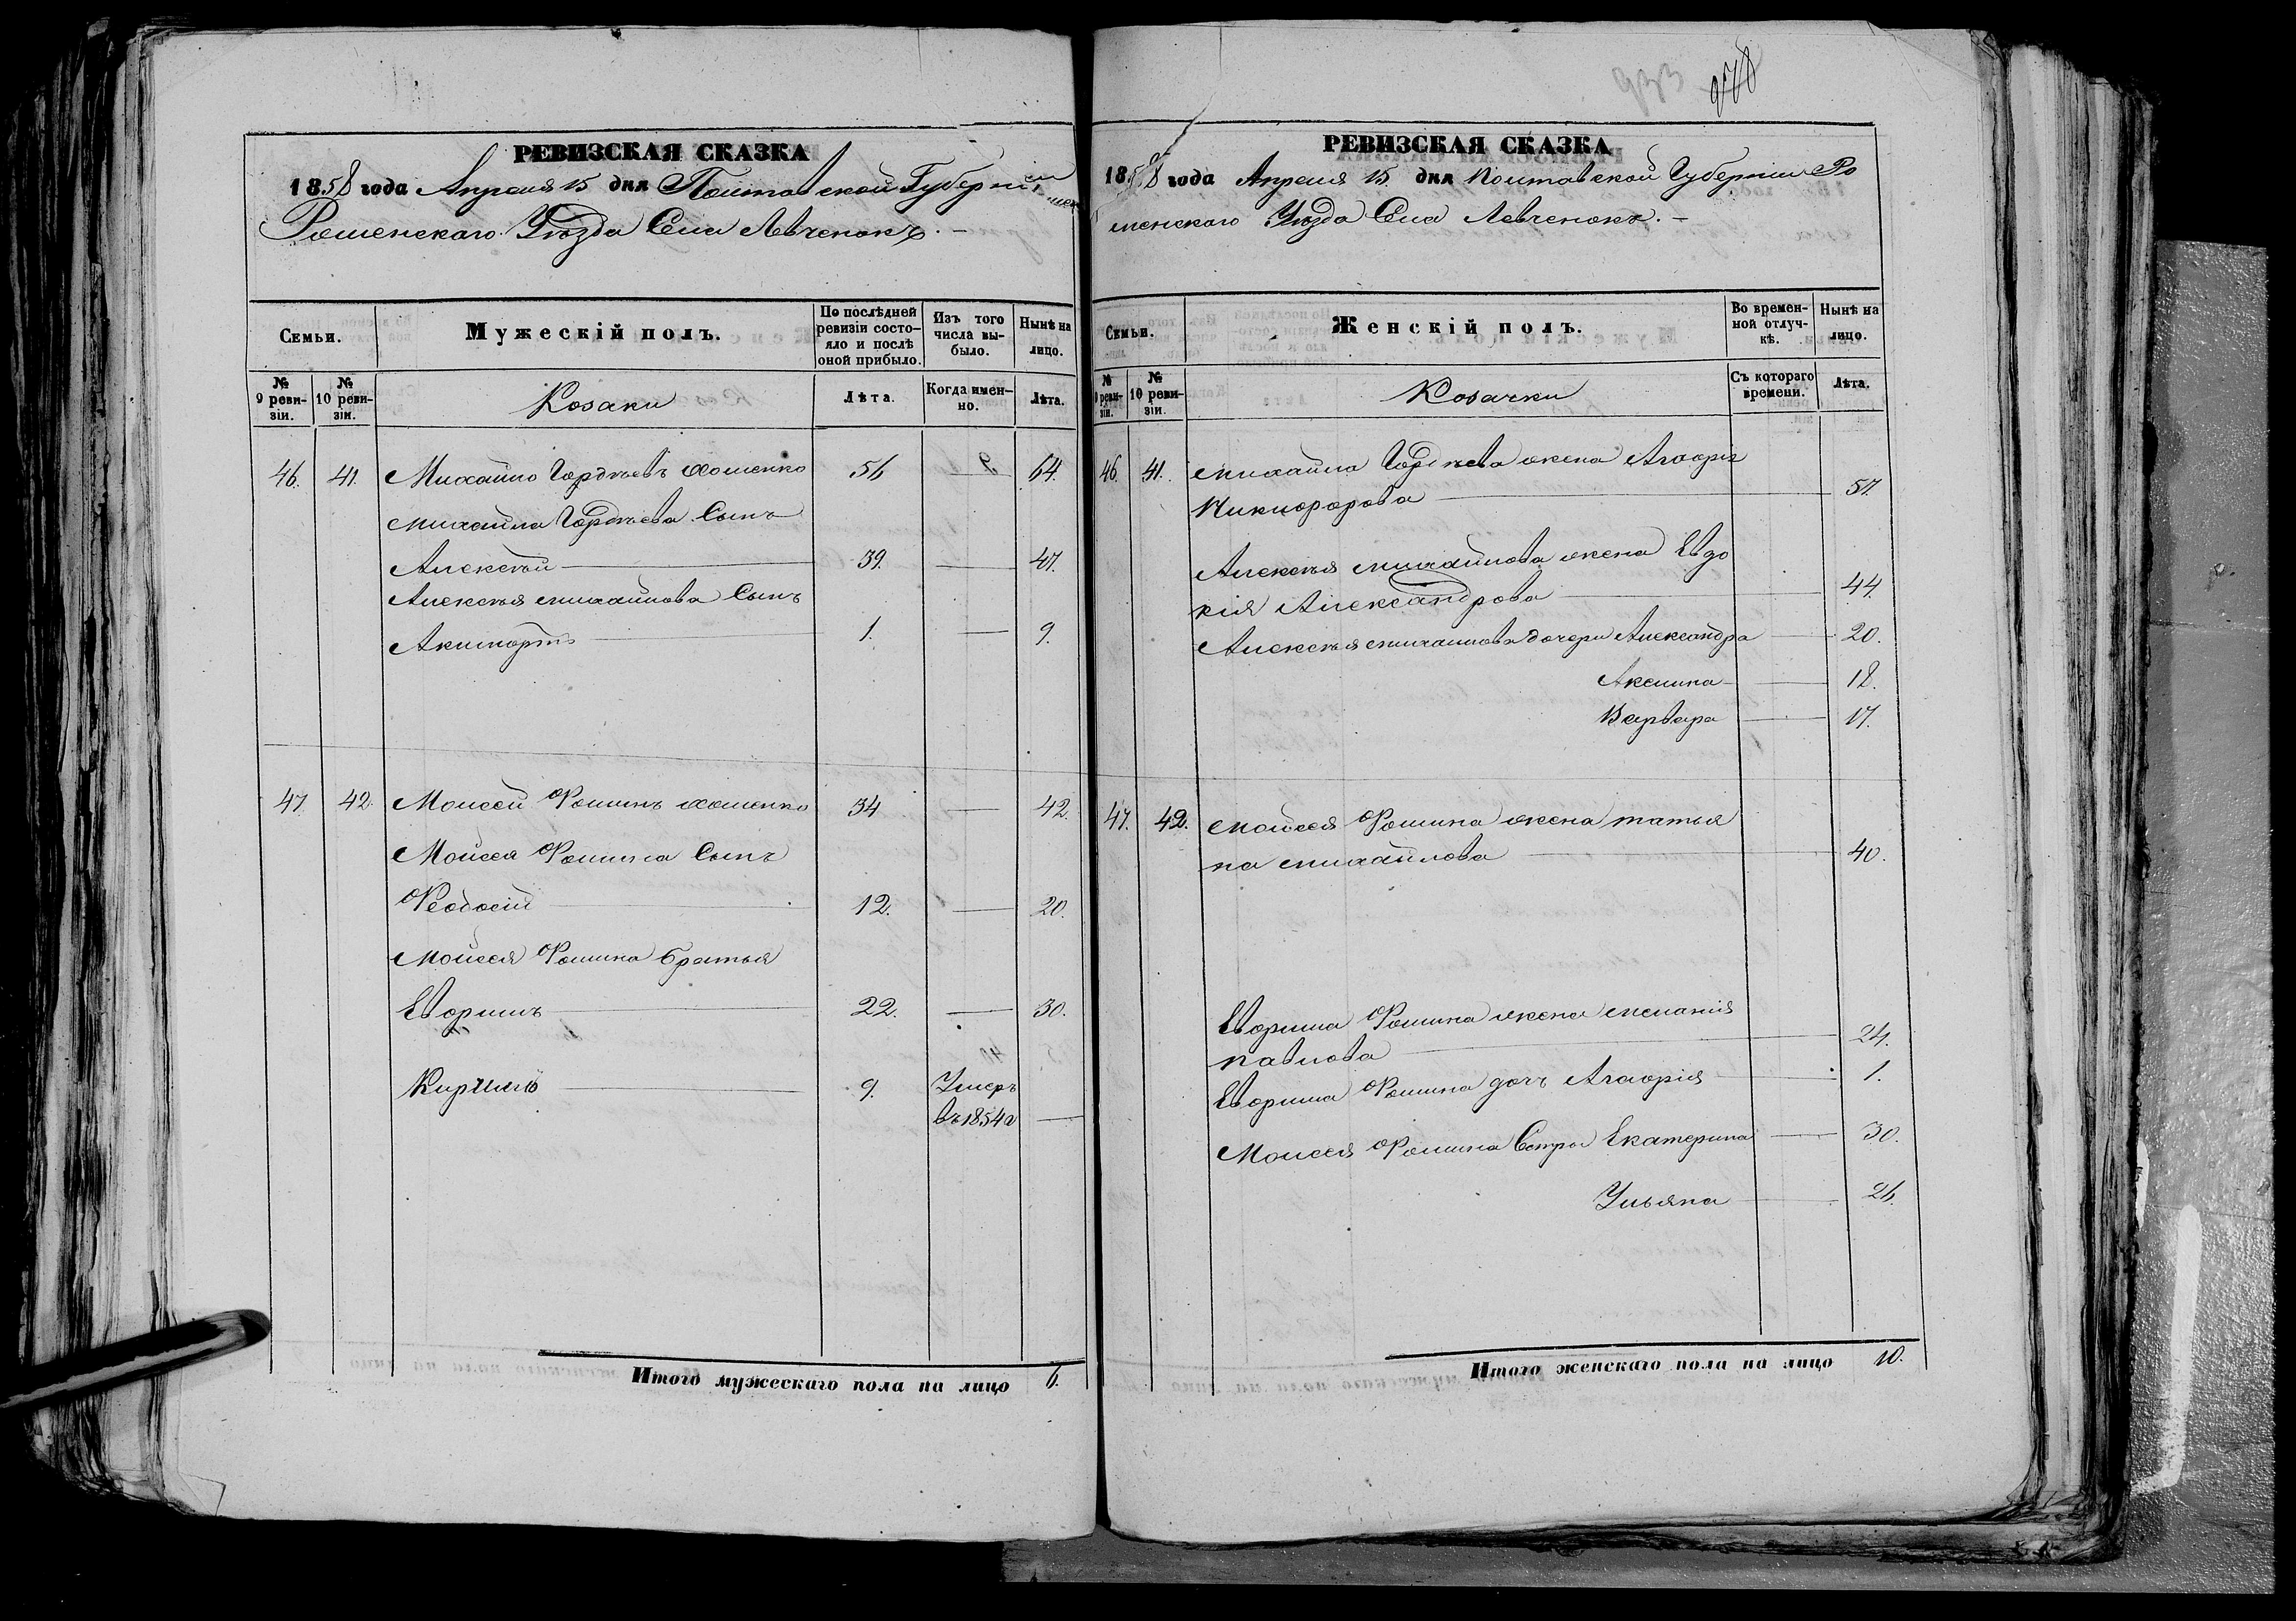 933 978
РЕВИЗСКАЯ СКАЗКА
1858 года Апреля 15 дня Полтавской Губерніи
Роменскаго Уѣзда Села Левченокъ. –
Семьи.
Мужескій полъ.
По послѣдней ревизіи состояло и послѣ оной прибыло.
Изъ того числа выбыло.
Нынѣ на лицо.
№ 9 ревизіи.
№ 10 ревизіи.
Козаки
Лѣта.
Когда именно.
Лѣта.
46. 41. Михайло Гордѣевъ Хоменко 56 — 64.
Михайла Гордѣева Сынъ
Алексѣй — 39. — 47.
Алексѣя Михайлова Сынъ
— 1. — 9.
47. 42. Моисей Фоминъ Хоменко 34 — 42.
Моисея Фомина Сынъ
Феодосій — 12. — 20.
Моисея Фомина братья
Евфимъ — 22. — 30.
Кирилъ — 9. Умеръ
въ 1854 г —
Итого мужескаго пола на лицо 6.
РЕВИЗСКАЯ СКАЗКА
1858 года Апреля 15 дня Полтавской Губерніи Ро
менскаго Уѣзда Села Левченокъ. –
Семьи.
Женскій полъ.
Во временной отлучкѣ.
Нынѣ на лицо.
№ 9 ревизіи.
№ 10 ревизіи.
Козачки
Съ котораго времени.
Лѣта.
46. 41. Михайла Гордѣева жена Глафира
Никифорова — 57.
Алексѣя Михайлова жена Евдо
кія Александрова — 44.
Алексѣя Михайлова дочери Александра — 20.
Аксинья — 18.
Варвара — 17.
47. 42. Моисея Фомина жена Татья
на Михайлова — 40.
Евфима Фомина жена Меланія
Павлова — 24.
Евфима Фомина дочь — 1.
Моисея Фомина Сестры Екатерина — 30.
Ульяна — 26.
Итого женскаго пола на лицо 10.